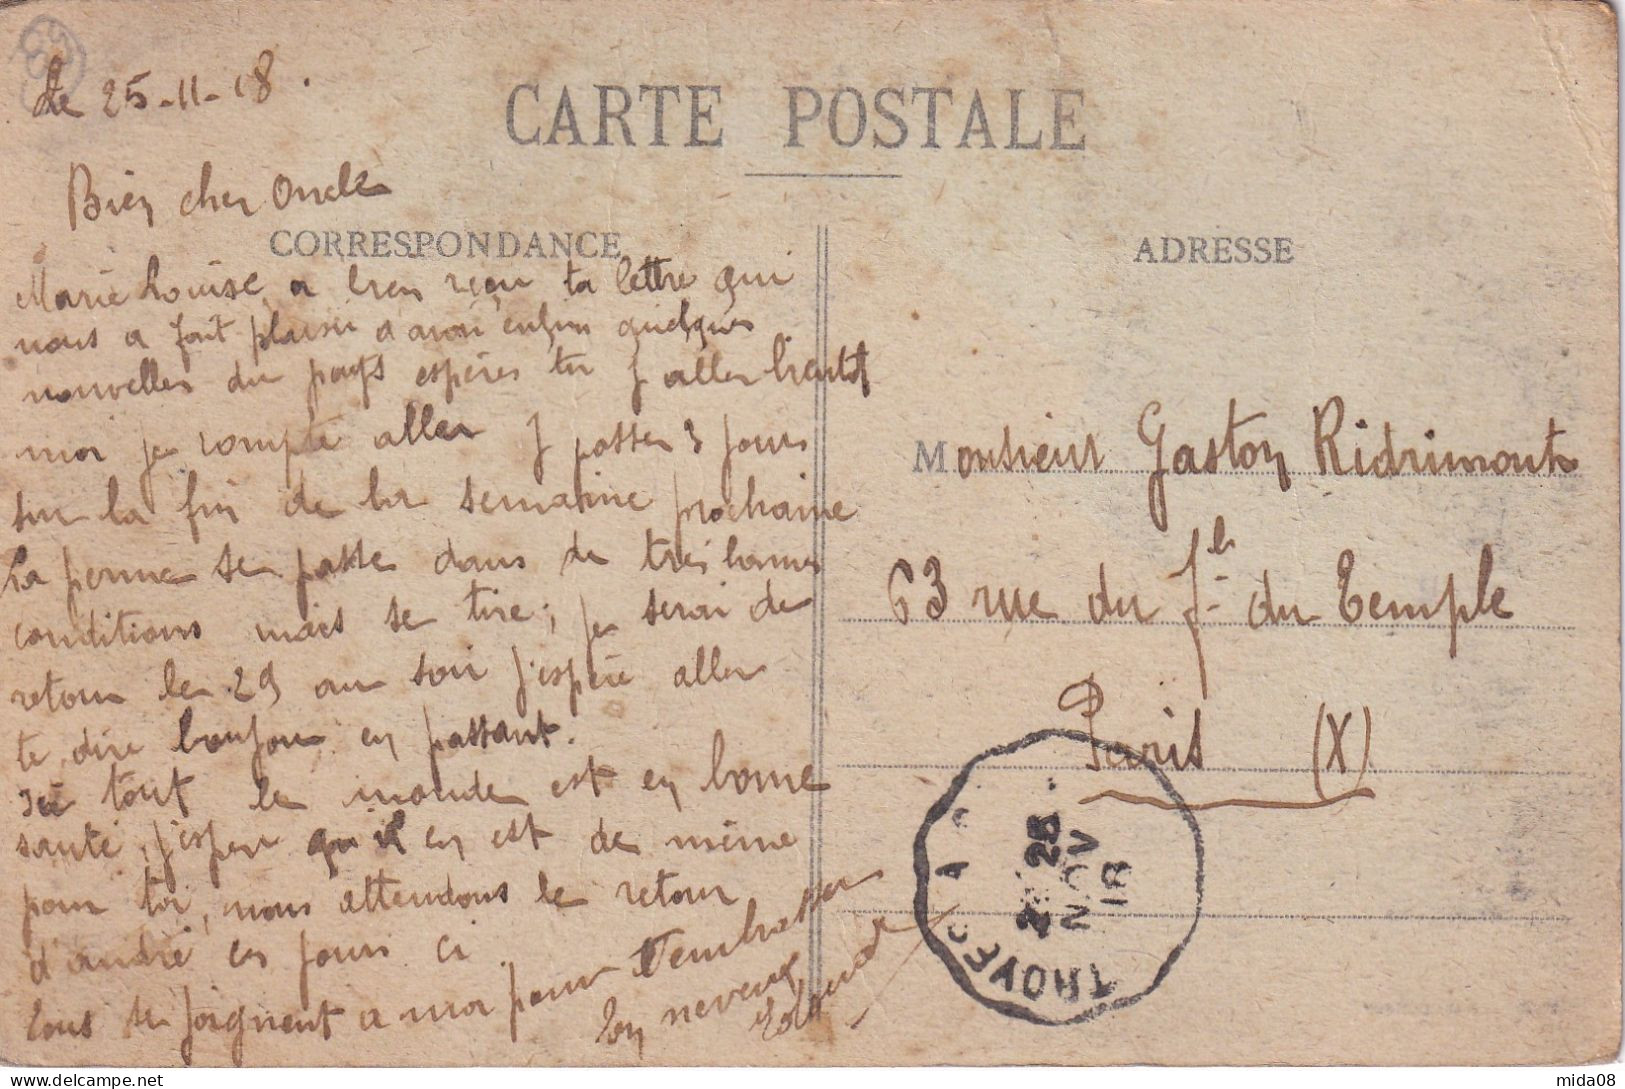 Le 25-11-18.
CARTE POSTALE
Bien cher Oncle
CORRESPONDANCE
Marie Louise a bien reçu ta lettre qui
nous a fait plaisir d'avoir enfin quelques
nouvelles du pays espères tu y aller bientôt
moi je compte aller y passer 3 jours
sur la fin de la semaine prochaine
La perme se passe dans de très bonnes
conditions mais se tire; je serai de
retour le 29 au soir j'espère aller
te dire bonjour en passant.
Ici tout le monde est en bonne
santé, j'espère qu'il en est de même
pour toi, nous attendons le retour
d'andré ces jours ci
tous se joignent a moi pour t'embrasser
ton neveux
ADRESSE
Monsieur Gaston Ridrimont
63 rue du fg du Temple
Paris (X)
TROYES A
25
NOV
18
mida08